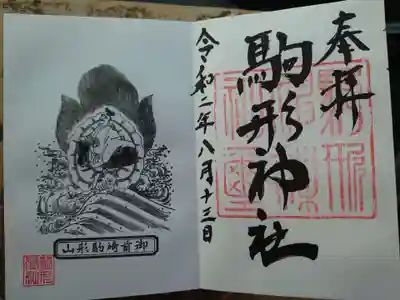 奉拝
駒形神社
令和二年八月十三日
山形駒崎前御